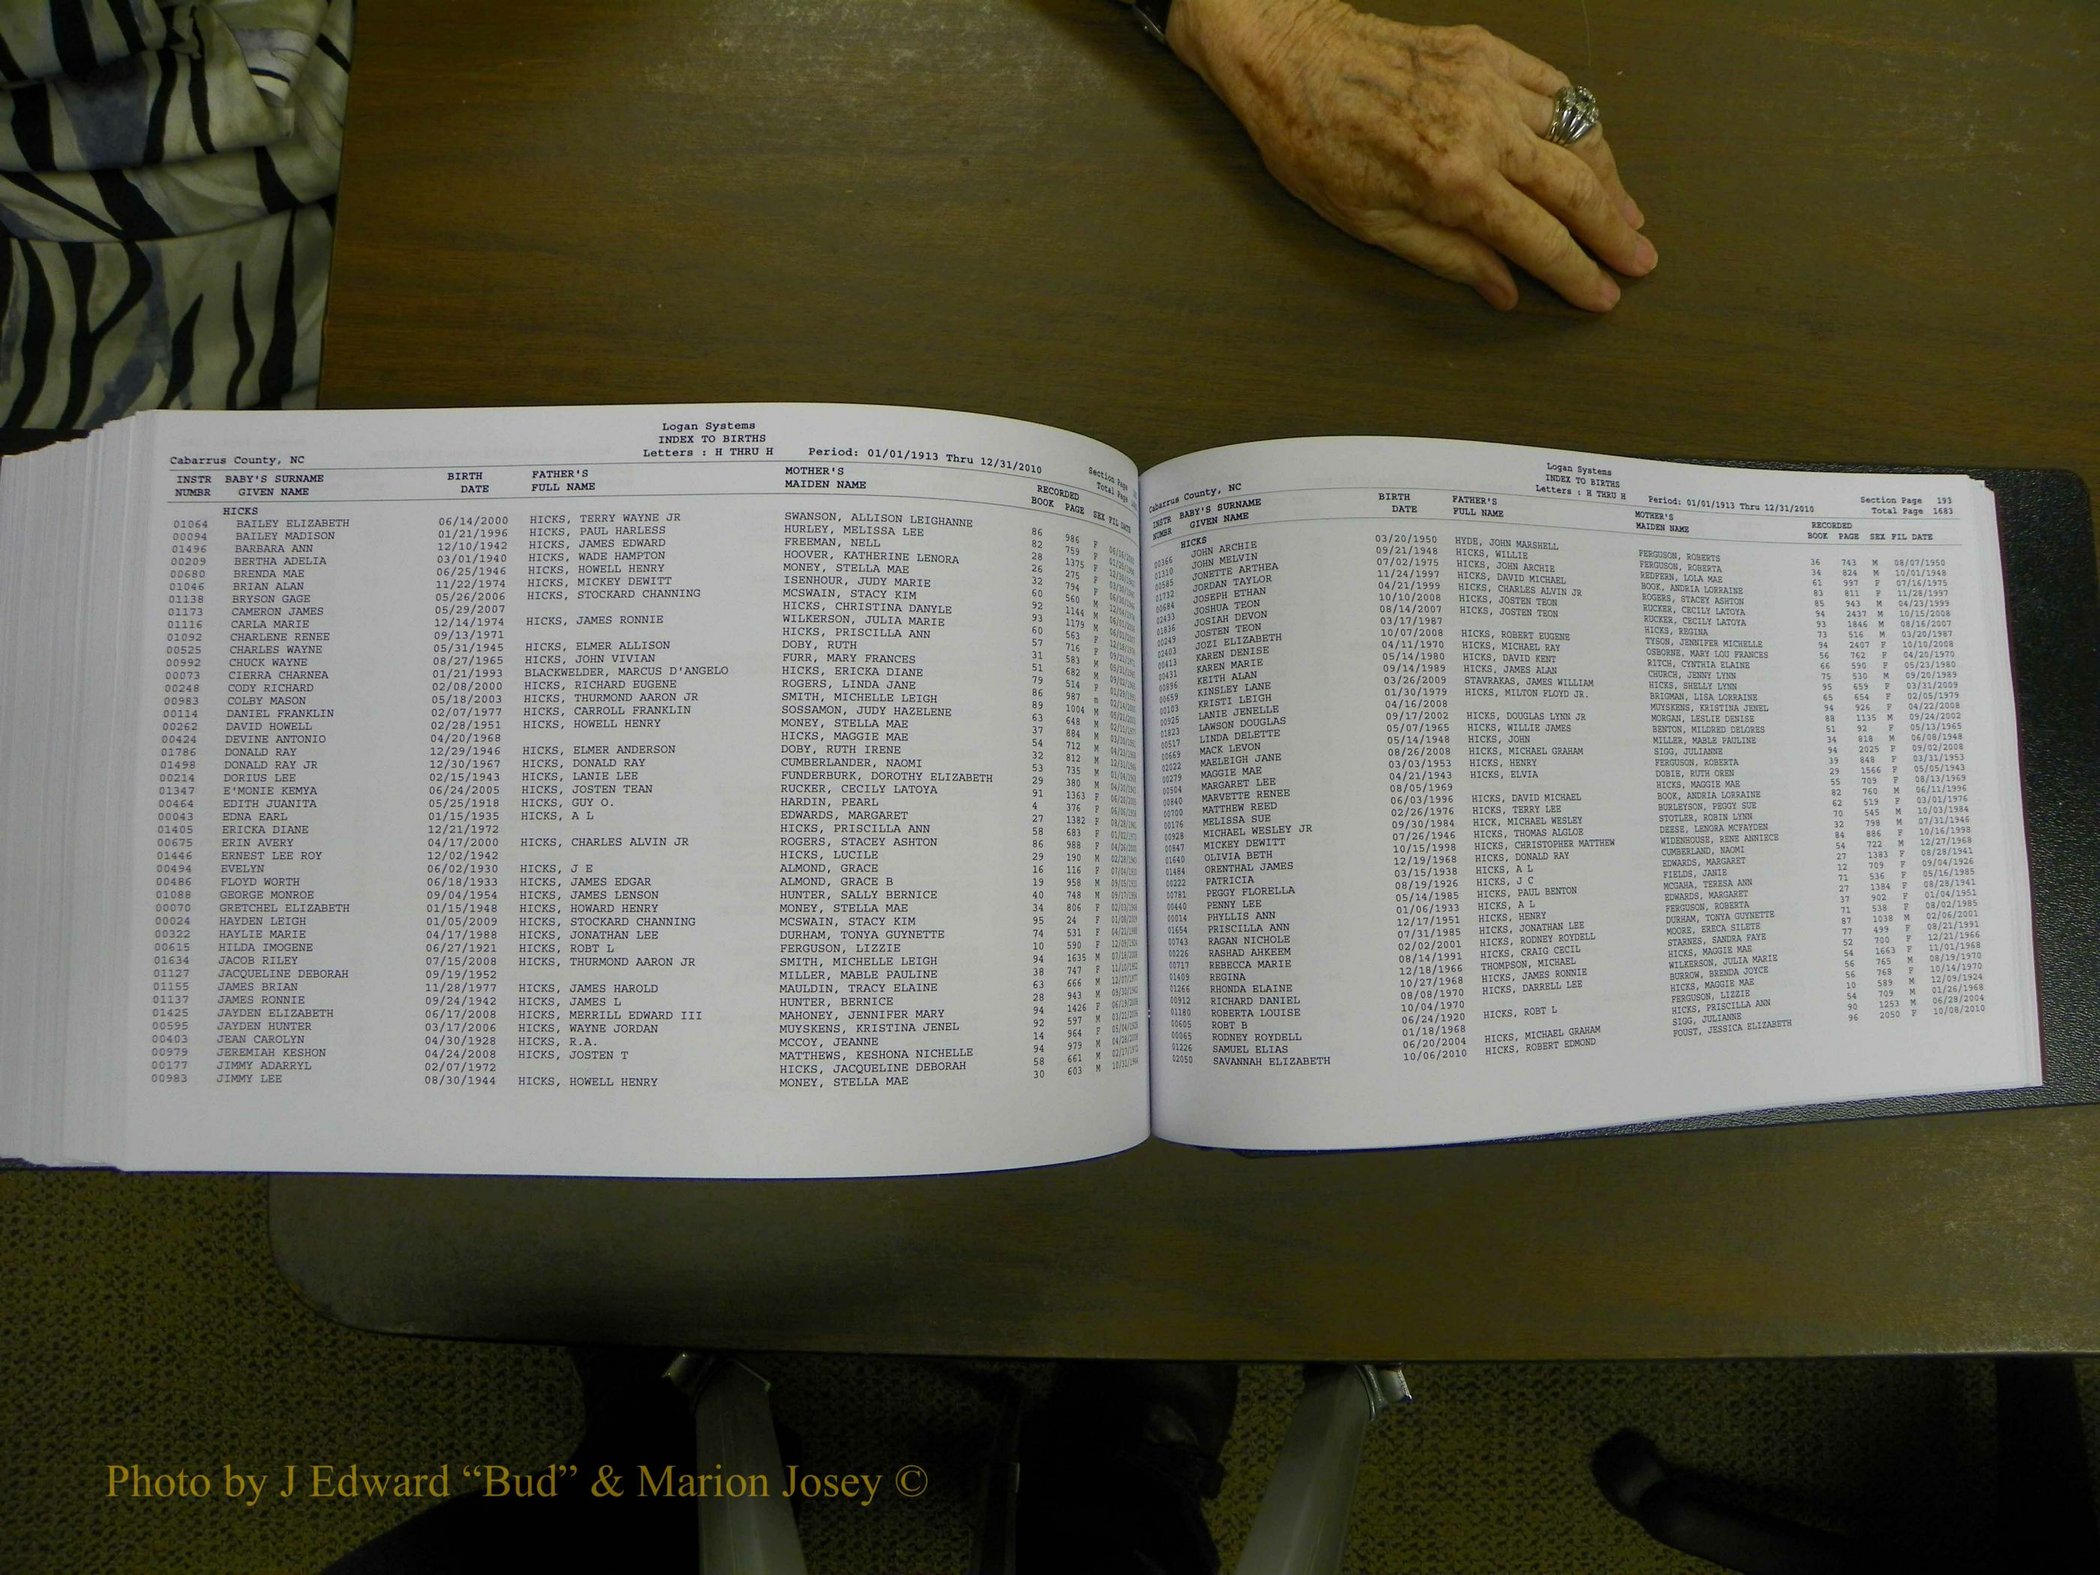 Logan Systems
INDEX TO BIRTHS
Cabarrus County, NC Letters : H THRU H Period: 01/01/1913 Thru 12/31/2010 Section Page
Total Page
INSTR BABY'S SURNAME BIRTH FATHER'S MOTHER'S RECORDED
NUMBR GIVEN NAME DATE FULL NAME MAIDEN NAME BOOK PAGE SEX FIL DATE
HICKS
01064 BAILEY ELIZABETH 06/14/2000 HICKS, TERRY WAYNE JR SWANSON, ALLISON LEIGHANNE 86 986 F
00094 BAILEY MADISON 01/21/1996 HICKS, PAUL HARLESS HURLEY, MELISSA LEE 82 759 F
01496 BARBARA ANN 12/10/1942 HICKS, JAMES EDWARD FREEMAN, NELL 28 1375 F
00209 BERTHA ADELIA 03/01/1940 HICKS, WADE HAMPTON HOOVER, KATHERINE LENORA 26 275 F
00680 BRENDA MAE 06/25/1946 HICKS, HOWELL HENRY MONEY, STELLA MAE 32 794 F
01046 BRIAN ALAN 11/22/1974 HICKS, MICKEY DEWITT ISENHOUR, JUDY MARIE 60 560 M
01138 BRYSON GAGE 05/26/2006 HICKS, STOCKARD CHANNING MCSWAIN, STACY KIM 92 1144 M
01173 CAMERON JAMES 05/29/2007 HICKS, CHRISTINA DANYLE 93 1179 M
01116 CARLA MARIE 12/14/1974 HICKS, JAMES RONNIE WILKERSON, JULIA MARIE 60 563 F
01092 CHARLENE RENEE 09/13/1971 HICKS, PRISCILLA ANN 57 716 F
00525 CHARLES WAYNE 05/31/1945 HICKS, ELMER ALLISON DOBY, RUTH 31 583 M
00992 CHUCK WAYNE 08/27/1965 HICKS, JOHN VIVIAN FURR, MARY FRANCES 51 682 M
00073 CIERRA CHARNEA 01/21/1993 BLACKWELDER, MARCUS D'ANGELO HICKS, ERICKA DIANE 79 514 F
00248 CODY RICHARD 02/08/2000 HICKS, RICHARD EUGENE ROGERS, LINDA JANE 86 987 m
00983 COLBY MASON 05/18/2003 HICKS, THURMOND AARON JR SMITH, MICHELLE LEIGH 89 1004 M
00114 DANIEL FRANKLIN 02/07/1977 HICKS, CARROLL FRANKLIN SOSSAMON, JUDY HAZELENE 63 648 M
00262 DAVID HOWELL 02/28/1951 HICKS, HOWELL HENRY MONEY, STELLA MAE 37 884 M
00424 DEVINE ANTONIO 04/20/1968 HICKS, MAGGIE MAE 54 712 M
01786 DONALD RAY 12/29/1946 HICKS, ELMER ANDERSON DOBY, RUTH IRENE 32 812 M
01498 DONALD RAY JR 12/30/1967 HICKS, DONALD RAY CUMBERLANDER, NAOMI 53 735 M
00214 DORIUS LEE 02/15/1943 HICKS, LANIE LEE FUNDERBURK, DOROTHY ELIZABETH 29 380 M
01347 E'MONIE KEMYA 06/24/2005 HICKS, JOSTEN TEAN RUCKER, CECILY LATOYA 91 1363 F
00464 EDITH JUANITA 05/25/1918 HICKS, GUY O. HARDIN, PEARL 4 376 F
00043 EDNA EARL 01/15/1935 HICKS, A L EDWARDS, MARGARET 27 1382 F
01405 ERICKA DIANE 12/21/1972 HICKS, PRISCILLA ANN 58 683 F
00675 ERIN AVERY 04/17/2000 HICKS, CHARLES ALVIN JR ROGERS, STACEY ASHTON 86 988 F
01446 ERNEST LEE ROY 12/02/1942 HICKS, LUCILE 29 190 M
00494 EVELYN 06/02/1930 HICKS, J E ALMOND, GRACE 16 116 F
00486 FLOYD WORTH 06/18/1933 HICKS, JAMES EDGAR ALMOND, GRACE B 19 958 M
01088 GEORGE MONROE 09/04/1954 HICKS, JAMES LENSON HUNTER, SALLY BERNICE 40 748 M
00070 GRETCHEL ELIZABETH 01/15/1948 HICKS, HOWARD HENRY MONEY, STELLA MAE 34 806 F
00024 HAYDEN LEIGH 01/05/2009 HICKS, STOCKARD CHANNING MCSWAIN, STACY KIM 95 24 F
00322 HAYLIE MARIE 04/17/1988 HICKS, JONATHAN LEE DURHAM, TONYA GUYNETTE 74 531 F
00615 HILDA IMOGENE 06/27/1921 HICKS, ROBT L FERGUSON, LIZZIE 10 590 F
01634 JACOB RILEY 07/15/2008 HICKS, THURMOND AARON JR SMITH, MICHELLE LEIGH 94 1635 M
01127 JACQUELINE DEBORAH 09/19/1952 MILLER, MABLE PAULINE 38 747 F
01155 JAMES BRIAN 11/28/1977 HICKS, JAMES HAROLD MAULDIN, TRACY ELAINE 63 666 M
01137 JAMES RONNIE 09/24/1942 HICKS, JAMES L HUNTER, BERNICE 28 943 M
01425 JAYDEN ELIZABETH 06/17/2008 HICKS, MERRILL EDWARD III MAHONEY, JENNIFER MARY 94 1426 F
00595 JAYDEN HUNTER 03/17/2006 HICKS, WAYNE JORDAN MUYSKENS, KRISTINA JENEL 92 597 M
00403 JEAN CAROLYN 04/30/1928 HICKS, R.A. MCCOY, JEANNE 14 964 F
00979 JEREMIAH KESHON 04/24/2008 HICKS, JOSTEN T MATTHEWS, KESHONA NICHELLE 94 979 M
00177 JIMMY ADARRYL 02/07/1972 HICKS, JACQUELINE DEBORAH 58 661 M
00983 JIMMY LEE 08/30/1944 HICKS, HOWELL HENRY MONEY, STELLA MAE 30 603 M
Logan Systems
INDEX TO BIRTHS
Cabarrus County, NC Letters : H THRU H Period: 01/01/1913 Thru 12/31/2010 Section Page 193
Total Page 1683
INSTR BABY'S SURNAME BIRTH FATHER'S MOTHER'S RECORDED
NUMBR GIVEN NAME DATE FULL NAME MAIDEN NAME BOOK PAGE SEX FIL DATE
HICKS
00366 JOHN ARCHIE 03/20/1950 HYDE, JOHN MARSHELL FERGUSON, ROBERTS 36 743 M 08/07/1950
01310 JOHN MELVIN 09/21/1948 HICKS, WILLIE FERGUSON, ROBERTA 34 824 M 10/01/1948
00585 JONETTE ARTHEA 07/02/1975 HICKS, JOHN ARCHIE REDFERN, LOLA MAE 61 997 F 07/16/1975
01732 JORDAN TAYLOR 11/24/1997 HICKS, DAVID MICHAEL BOOK, ANDRIA LORRAINE 83 811 F 11/28/1997
00684 JOSEPH ETHAN 04/21/1999 HICKS, CHARLES ALVIN JR ROGERS, STACEY ASHTON 85 943 M 04/23/1999
02433 JOSHUA TEON 10/10/2008 HICKS, JOSTEN TEON RUCKER, CECILY LATOYA 94 2437 M 10/15/2008
01836 JOSIAH DEVON 08/14/2007 HICKS, JOSTEN TEON RUCKER, CECILY LATOYA 93 1846 M 08/16/2007
00249 JOSTEN TEON 03/17/1987 HICKS, REGINA 73 516 M 03/20/1987
02403 JOZI ELIZABETH 10/07/2008 HICKS, ROBERT EUGENE TYSON, JENNIFER MICHELLE 94 2407 F 10/10/2008
00413 KAREN DENISE 04/11/1970 HICKS, MICHAEL RAY OSBORNE, MARY LOU FRANCES 56 762 F 04/20/1970
00431 KAREN MARIE 05/14/1980 HICKS, DAVID KENT RITCH, CYNTHIA ELAINE 66 590 F 05/23/1980
00896 KEITH ALAN 09/14/1989 HICKS, JAMES ALAN CHURCH, JENNY LYNN 75 530 M 09/20/1989
00659 KINSLEY LANE 03/26/2009 STAVRAKAS, JAMES WILLIAM HICKS, SHELLY LYNN 95 659 F 03/31/2009
00103 KRISTI LEIGH 01/30/1979 HICKS, MILTON FLOYD JR. BRIGMAN, LISA LORRAINE 65 654 F 02/05/1979
00925 LANIE JENELLE 04/16/2008 MUYSKENS, KRISTINA JENEL 94 926 F 04/22/2008
01823 LAWSON DOUGLAS 09/17/2002 HICKS, DOUGLAS LYNN JR MORGAN, LESLIE DENISE 88 1135 M 09/24/2002
00517 LINDA DELETTE 05/07/1965 HICKS, WILLIE JAMES BENTON, MILDRED DELORES 51 92 F 05/13/1965
00669 MACK LEVON 05/14/1948 HICKS, JOHN MILLER, MABLE PAULINE 34 818 M 06/08/1948
02022 MAELEIGH JANE 08/26/2008 HICKS, MICHAEL GRAHAM SIGG, JULIANNE 94 2025 F 09/02/2008
00279 MAGGIE MAE 03/03/1953 HICKS, HENRY FERGUSON, ROBERTA 39 848 F 03/31/1953
00504 MARGARET LEE 04/21/1943 HICKS, ELVIA DOBIE, RUTH OREN 29 1566 F 05/05/1943
00840 MARVETTE RENEE 08/05/1969 HICKS, MAGGIE MAE 55 709 F 08/13/1969
00700 MATTHEW REED 06/03/1996 HICKS, DAVID MICHAEL BOOK, ANDRIA LORRAINE 82 760 M 06/11/1996
00176 MELISSA SUE 02/26/1976 HICKS, TERRY LEE BURLEYSON, PEGGY SUE 62 519 F 03/01/1976
00928 MICHAEL WESLEY JR 09/30/1984 HICK, MICHAEL WESLEY STOTLER, ROBIN LYNN 70 545 M 10/03/1984
00847 MICKEY DEWITT 07/26/1946 HICKS, THOMAS ALGLOE DEESE, LENORA MCFAYDEN 32 798 M 07/31/1946
01640 OLIVIA BETH 10/15/1998 HICKS, CHRISTOPHER MATTHEW WIDENHOUSE, RENE ANNIECE 84 886 F 10/16/1998
01484 ORENTHAL JAMES 12/19/1968 HICKS, DONALD RAY CUMBERLAND, NAOMI 54 722 M 12/27/1968
00222 PATRICIA 03/15/1938 HICKS, A L EDWARDS, MARGARET 27 1383 F 08/28/1941
00781 PEGGY FLORELLA 08/19/1926 HICKS, J C FIELDS, JANIE 12 709 F 09/04/1926
00440 PENNY LEE 05/14/1985 HICKS, PAUL BENTON MCGAHA, TERESA ANN 71 536 F 05/16/1985
00014 PHYLLIS ANN 01/06/1933 HICKS, A L EDWARDS, MARGARET 27 1384 F 08/28/1941
01654 PRISCILLA ANN 12/17/1951 HICKS, HENRY FERGUSON, ROBERTA 37 902 F 01/04/1951
00743 RAGAN NICHOLE 07/31/1985 HICKS, JONATHAN LEE DURHAM, TONYA GUYNETTE 71 538 F 08/02/1985
00226 RASHAD AHKEEM 02/02/2001 HICKS, RODNEY ROYDELL MOORE, ERECA SILETE 87 1038 M 02/06/2001
00717 REBECCA MARIE 08/14/1991 HICKS, CRAIG CECIL STARNES, SANDRA FAYE 77 499 F 08/21/1991
01409 REGINA 12/18/1966 THOMPSON, MICHAEL HICKS, MAGGIE MAE 52 700 F 12/21/1966
01266 RHONDA ELAINE 10/27/1968 HICKS, JAMES RONNIE WILKERSON, JULIA MARIE 54 1663 F 11/01/1968
00912 RICHARD DANIEL 08/08/1970 HICKS, DARRELL LEE BURROW, BRENDA JOYCE 56 765 M 08/19/1970
01180 ROBERTA LOUISE 10/04/1970 HICKS, MAGGIE MAE 56 768 F 10/14/1970
00605 ROBT B 06/24/1920 HICKS, ROBT L FERGUSON, LIZZIE 10 589 M 12/09/1924
00065 RODNEY ROYDELL 01/18/1968 HICKS, PRISCILLA ANN 54 709 M 01/26/1968
01226 SAMUEL ELIAS 06/20/2004 HICKS, MICHAEL GRAHAM SIGG, JULIANNE 90 1253 M 06/28/2004
02050 SAVANNAH ELIZABETH 10/06/2010 HICKS, ROBERT EDMOND FOUST, JESSICA ELIZABETH 96 2050 F 10/08/2010
Photo by J Edward “Bud” & Marion Josey ©